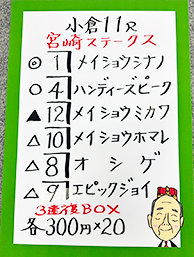 小倉11R
宮崎ステークス
◎ 1 メイショウシナノ
○ 4 ハンディーズピーク
▲ 12 メイショウミカワ
△ 10 メイショウホマレ
△ 8 オシゲ
△ 9 エピックジョイ
3連複BOX
各300円×20